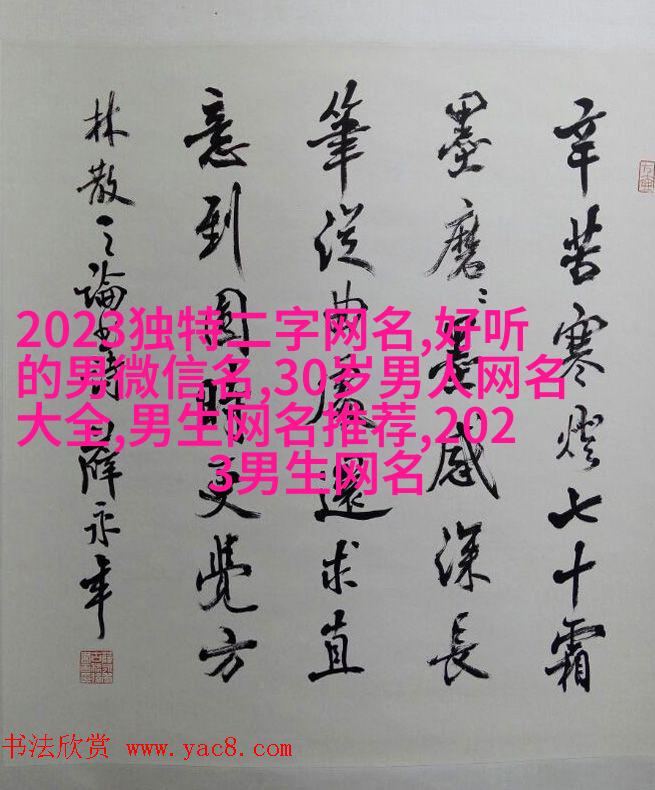 辛苦寒燈七十霜
墨磨〻墨感深長
筆從曲處還求直
意到圓時更覺方
林散之論書詩 薛永年
2023独特二字网名,好听
的男微信名,30岁男人网名
大全,男生网名推荐,202
3男生网名
书法欣赏 www.yac8.com